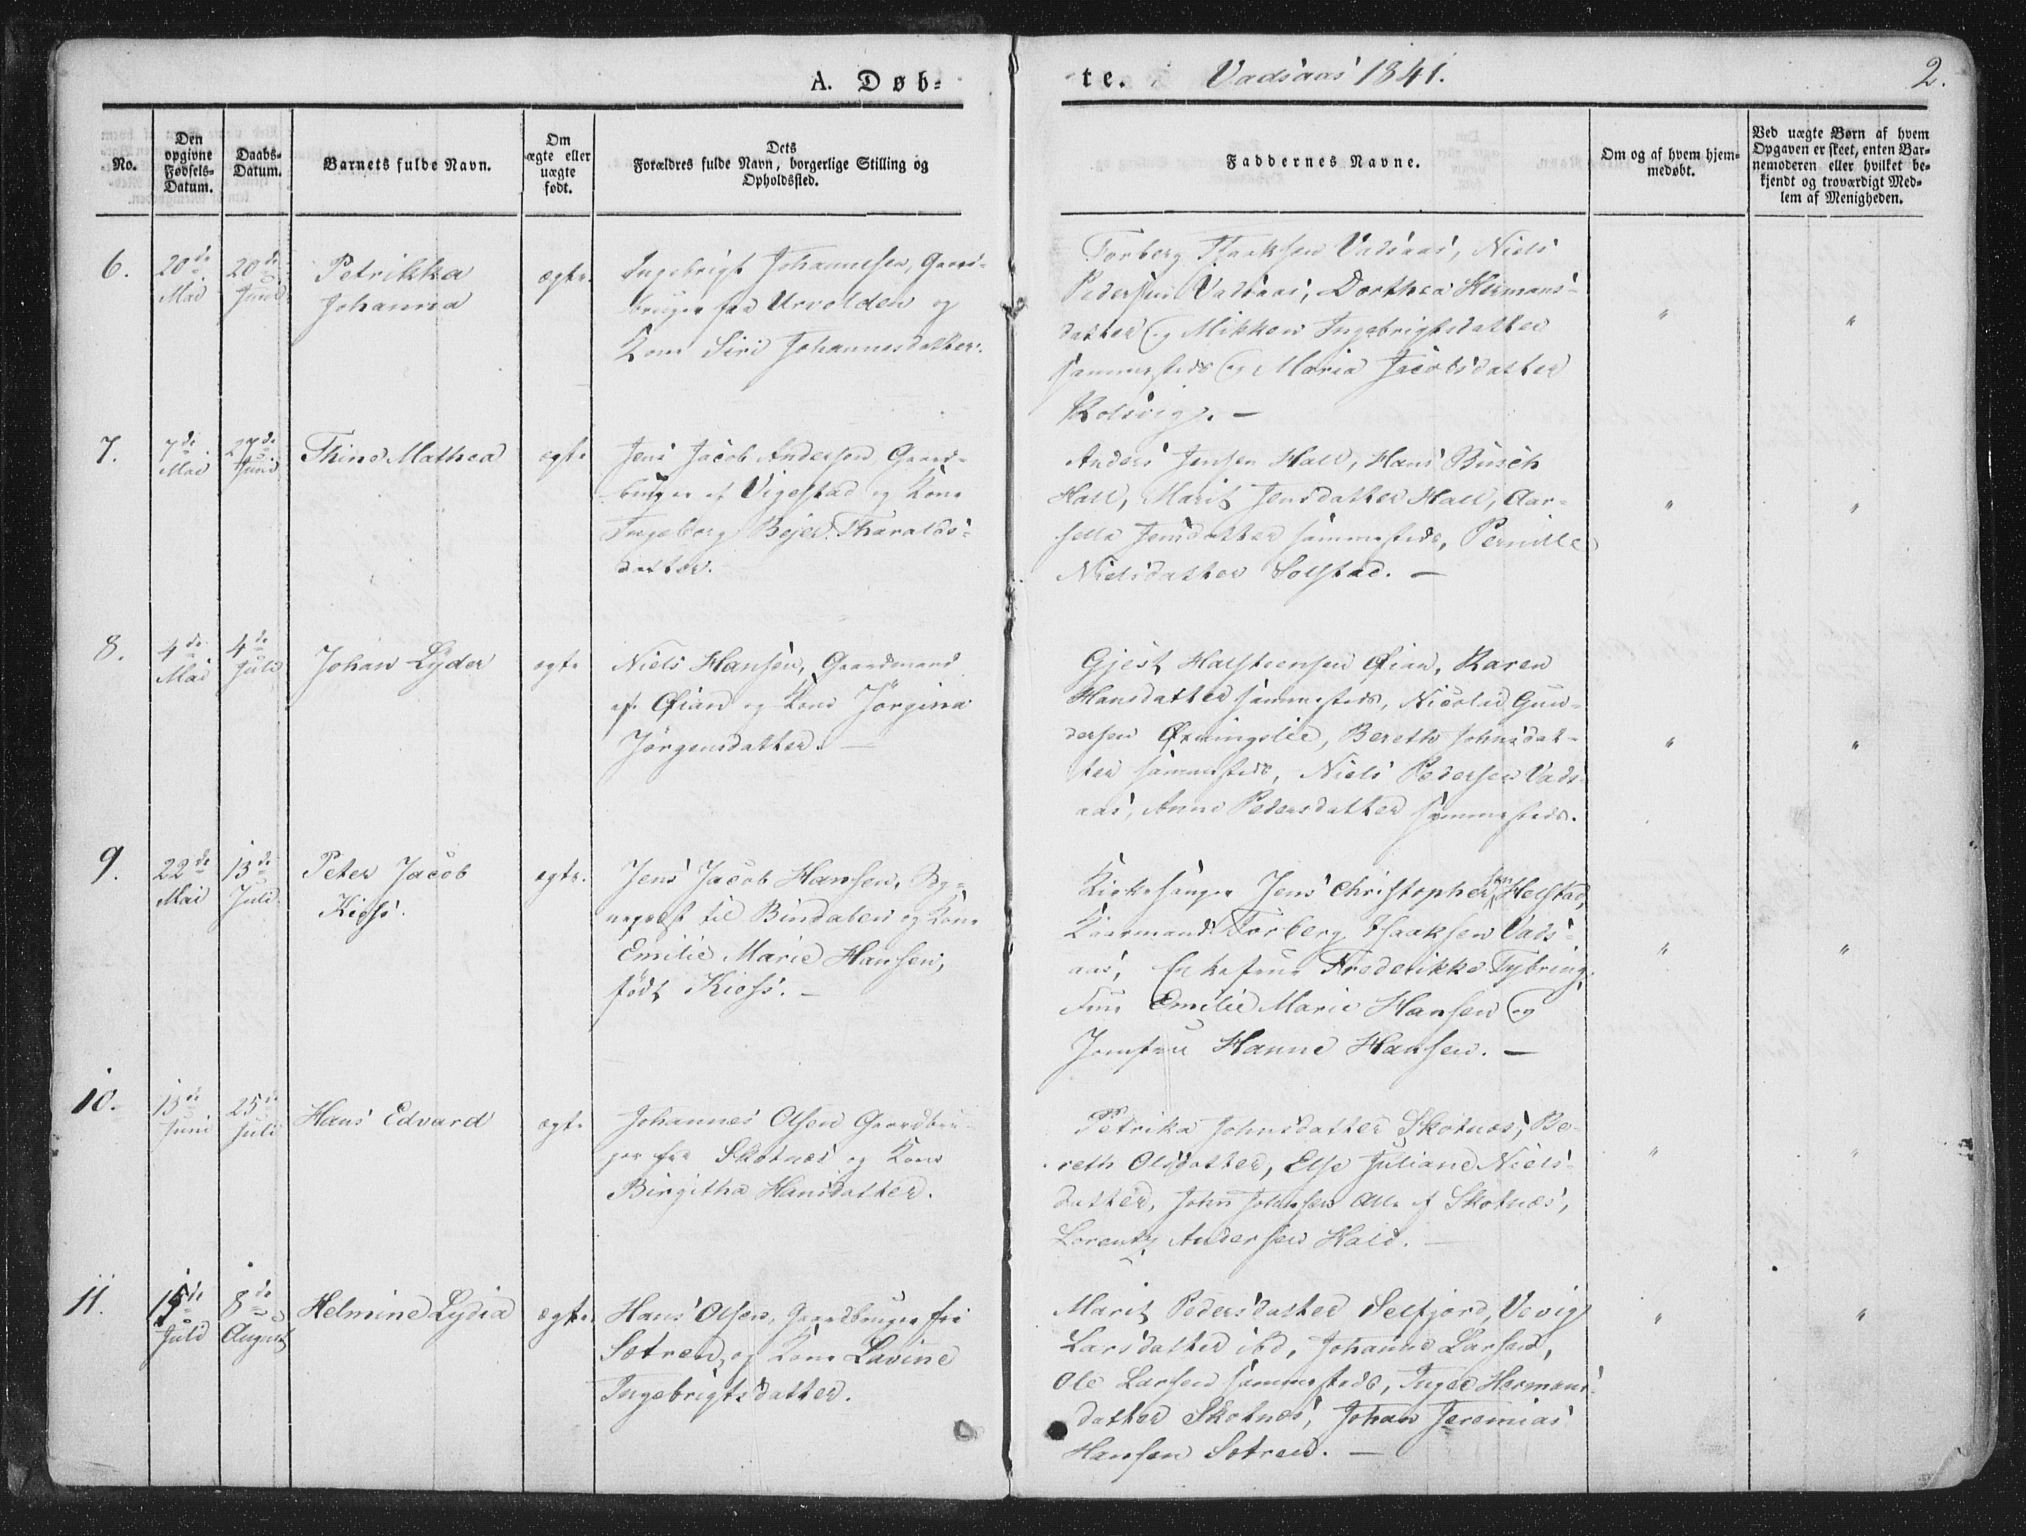 A. Døb-
te. Vadsaas 1841. 2.
No.
Den opgivne Fødsels-Datum.
Daabs-Datum.
Barnets fulde Navn.
Om ægte eller uægte født.
Dets Forældres fulde Navn, borgerlige Stilling og Opholdssted.
Faddernes Navne.
Om og af hvem hjem-medøbt.
Ved uægte Børn af hvem Opgaven er skeet, enten Bar-nemoderen eller hvilket be-kjendt og troværdigt Med-lem af Menigheden.
6. 20de Mai 20de Juni Petrikka Johanna ægte
Ingebrigt Johannesen, Gaard-
bruger fra Urvolden og
Kone Siri Johannesdatter.
Torberg Isaksen Vadsaas, Niels
Pedersen Vadsaas, Dorthea Hermans-
datter og Mikken Ingebrigtsdatter
sammesteds og Maria Jacobsdatter
Holsvig. —
" "
7. 7de Mai 27de Juni Thine Mathea ægte
Jens Jacob Andersen Gaard-
bruger af Vigestad og Kone
Ingeborg Bejer Tharalds-
datter.
Anders Jensen Hald, Hans Busch
Hald, Marit Jensdatter Hald,
Jensdatter sammesteds, Pernille
Nielsdatter Solstad. —
" "
8. 4de Mai 4de Juli Johan Lyder ægte
Niels Hansen, Gaardmand
af Øian og Kone Jörgina
Jørgensdatter. —
Gjest Halsteensen Øian, Karen
Hansdatter sammesteds, Nicolai Gun-
dersen Øxningslie, Bereth Johnsdat-
ter sammesteds, Niels Pedersen Vads-
aas, Anne Pedersdatter sammesteds.
" "
9. 22de Mai 13de Juli Peter Jacob Kiøss. ægte.
Jens Jacob Hansen, Sog-
nepræst til Bindalen og Kone
Emilie Marie Hansen,
født Kiøss. —
Kirkesanger Jens Christophersen Helstad,
Torberg Isaksen Vads-
aas, Enkefrue Frederikke Tybring,
Frue Emilie Marie Hansen og
Jomfrue Hanne Hansen. —
" "
10. 13de Juni 25de Juli Hans Edvard ægte
Johannes Olsen Gaardbru-
ger fra Skotnes og Kone
Birgitha Hansdatter.
Petrika Johnsdatter Skotnes, Be-
reth Olsdatter, Else Juliane Niels-
datter, John Johnsen alle af Skotnes,
Lorentz Andersen Hald. —
" "
11. 15de Juli 8de August Helmine Lydia ægte
Hans Olsen, Gaardbruger fra
Sætren og Kone Lavine
Ingebrigtsdatter.
Marit Pedersdatter Selfjord,
Larsdatter ibd, Johanne Larsen,
Ole Larsen sammesteds, Inger Hermans-
datter Skotnes, Johan Jeremias
Hansen Sætren. —
" "